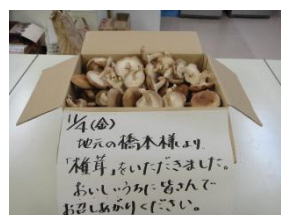 11/4(金)
地元の橋本様より
「椎茸」をいただきました。
おいしいうちに皆さんで
お召しあがりください。